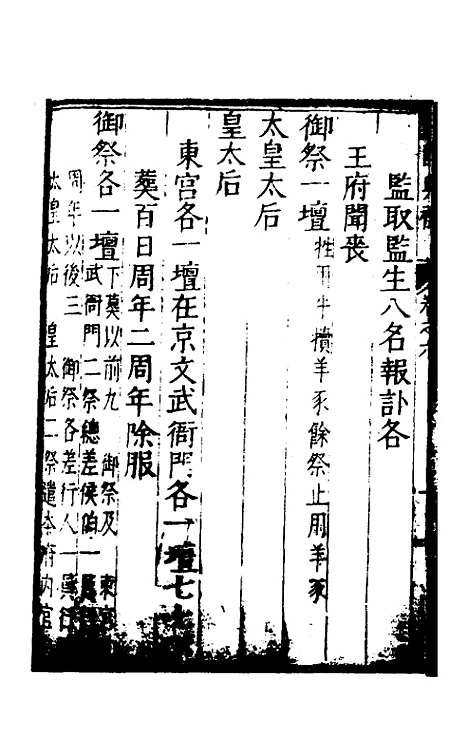 監取監生八名報訃各
王府聞喪
御祭一壇牲用牛犢羊豕餘祭止用羊豕
太皇太后
皇太后
東宮各一壇在京文武衙門各一壇七七
葬百日周年二周年除服
御祭各一壇下葬以前九 御祭及 東宮
武衙門二祭總差侯伯一
周年以後三 御祭各差行人一員行
太皇太后 皇太后二祭遣本府內官